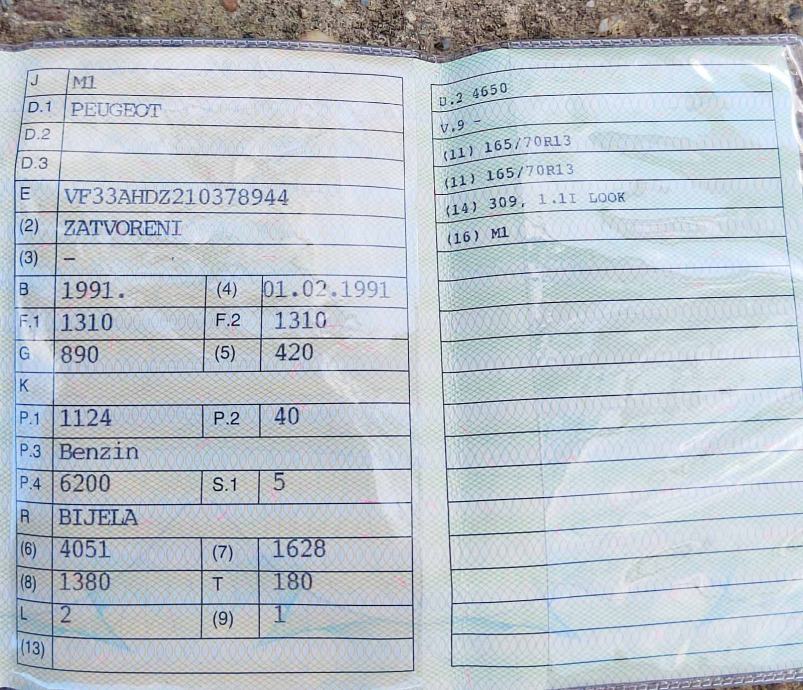 J M1
D.1 PEUGEOT
D.2
D.3
E VF33AHDZ210378944
(2) ZATVORENI
(3) –
B 1991. (4) 01.02.1991
F.1 1310 F.2 1310
G 890 (5) 420
K
P.1 1124 P.2 40
P.3 Benzin
P.4 6200 S.1 5
R BIJELA
(6) 4051 (7) 1628
(8) 1380 T 180
L 2 (9) 1
(13)
U.2 4650
V.9 –
(11) 165/70R13
(11) 165/70R13
(14) 309, 1.1I LOOK
(16) M1